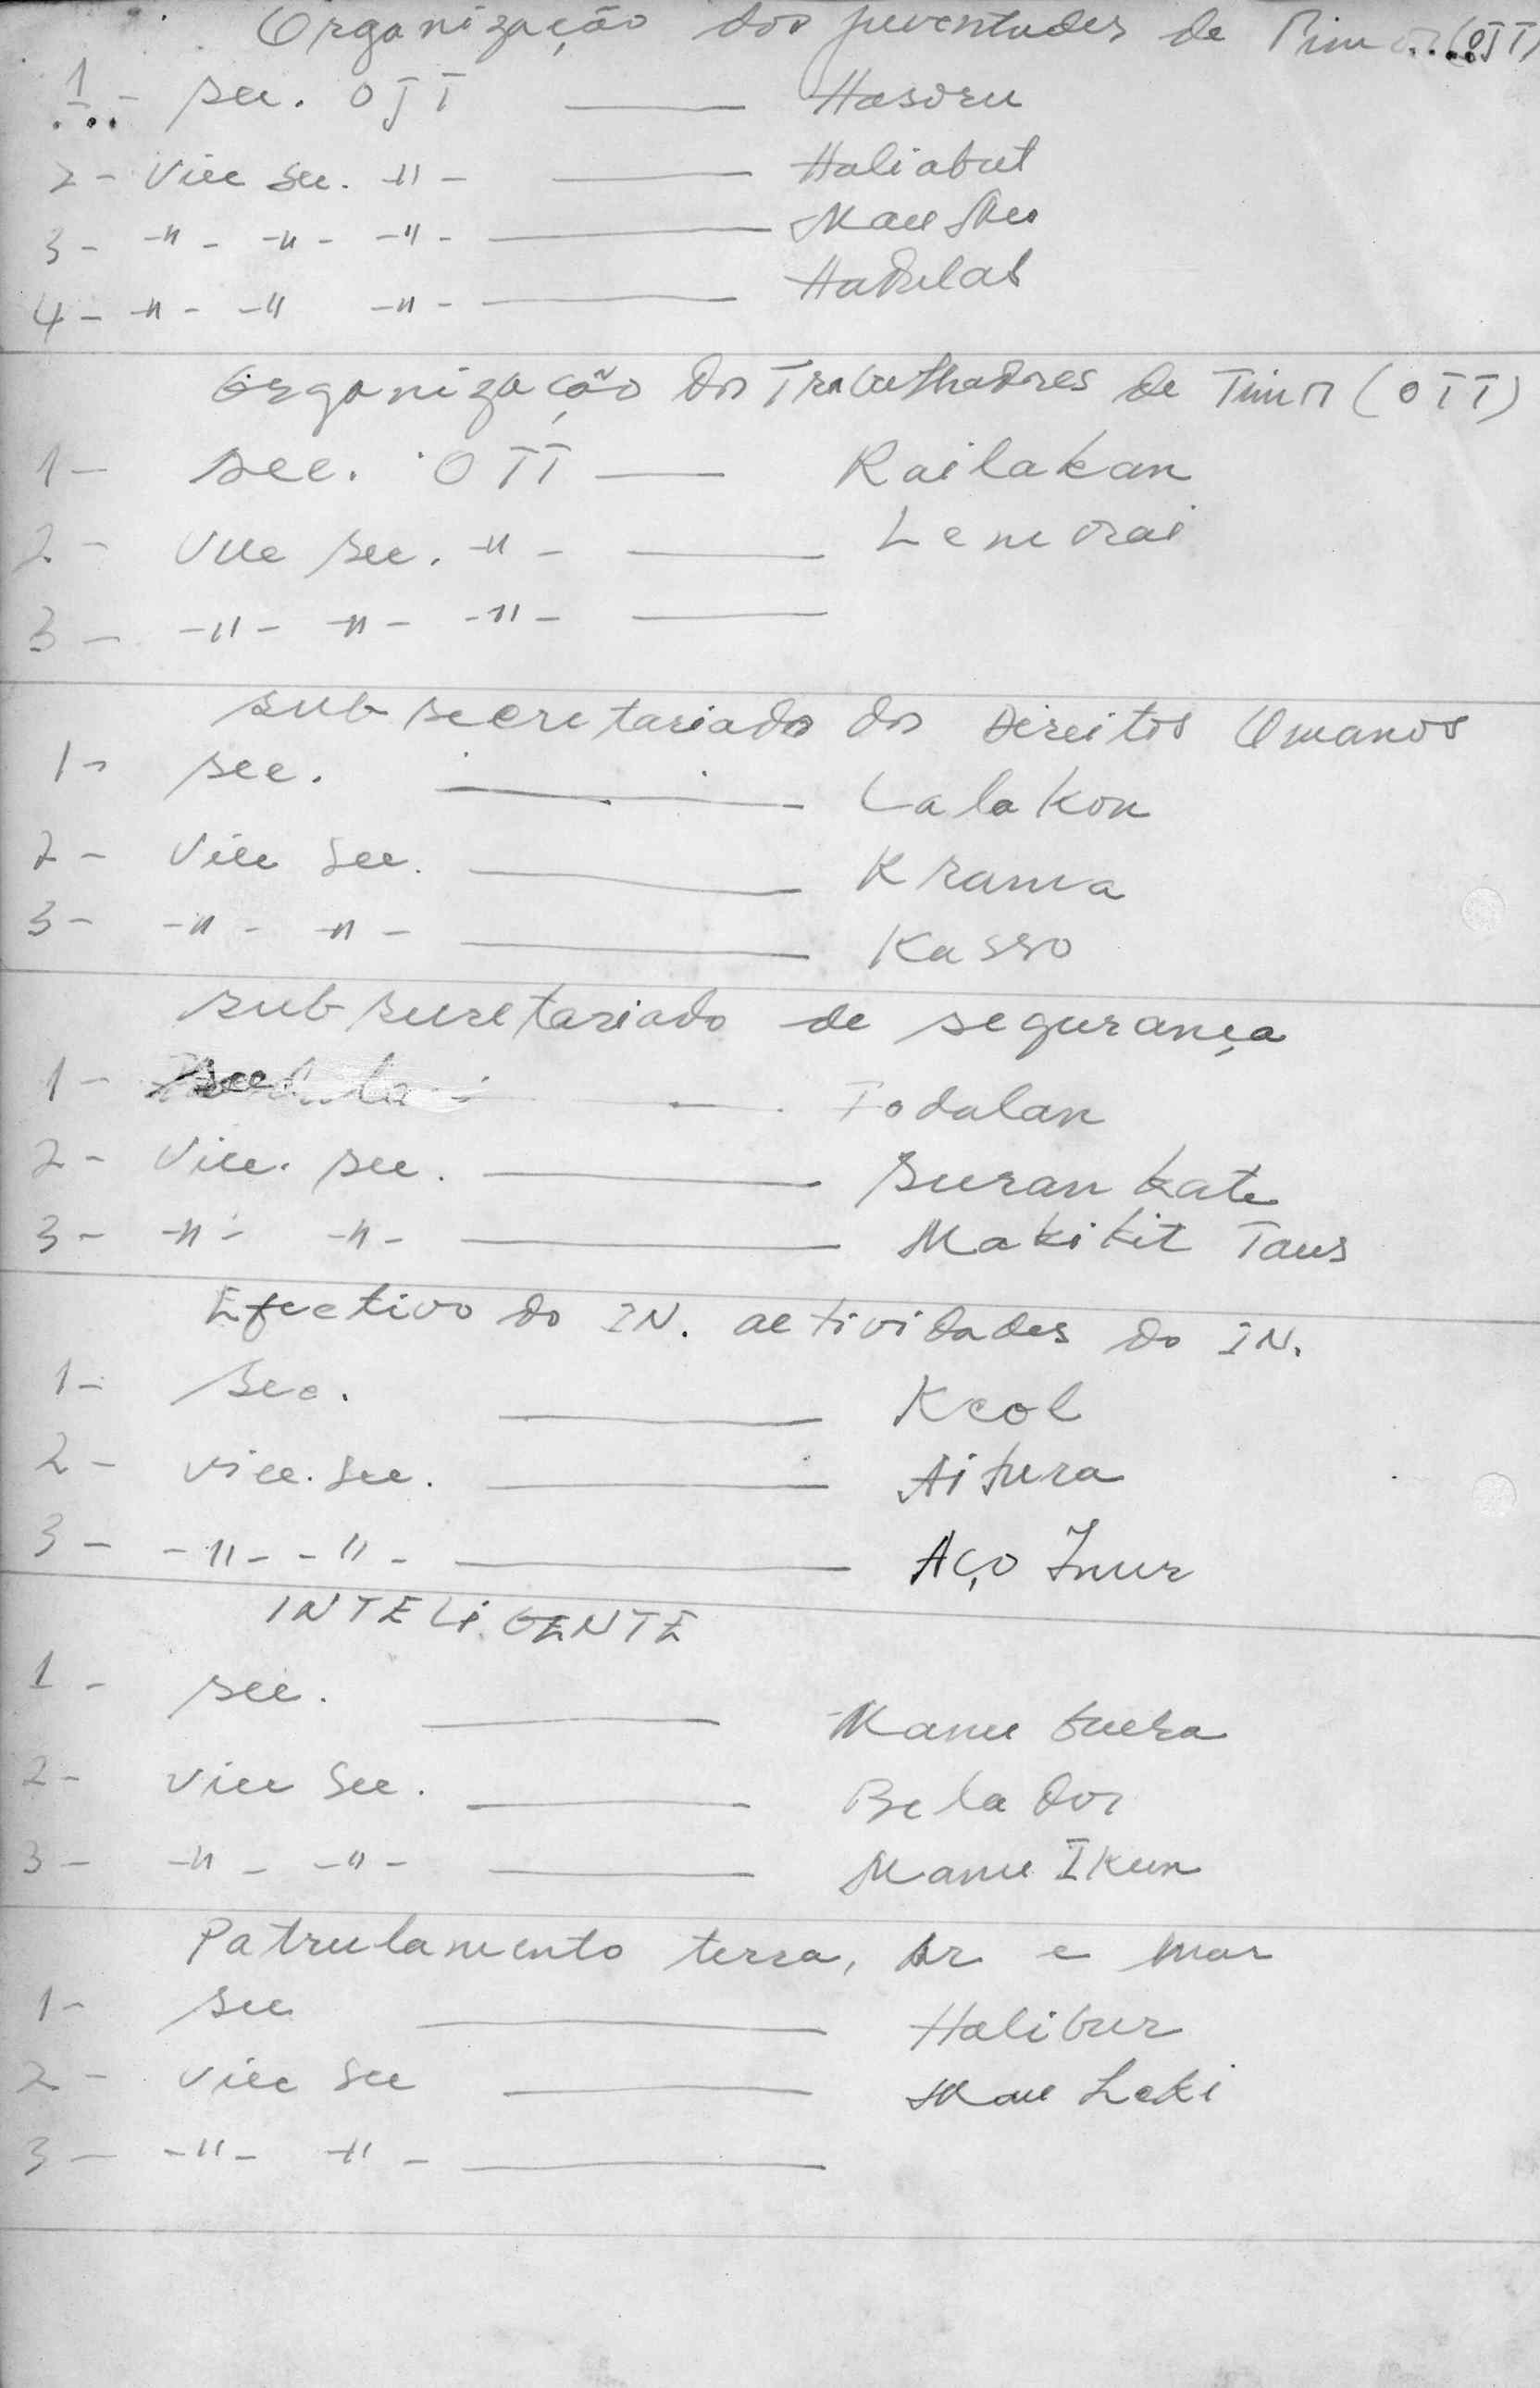 Organização dos juventudes de Timor (OJT)
1 - sec. OJT — Hasoru
2 - Vice sec. -"- — Haliabut
3 - -"- -"- -"- — Mau
4 - -"- -" -"- —
Organização dos Trabalhadores de Timor (OTT)
1 - sec. OTT — Railakan
2 - Vice sec. -"- — Lemorai
3 - -"- -"- -"- —
sub secretariado dos Direitos Omanos
1 - sec. — Lalakon
2 - Vice sec. — Krama
3 - -"- -"- — Kasso
sub secretariado de segurança
1 - sec. — Todalan
2 - Vice. sec. — Suran kate
3 - -"- -"- — Makikit Taus
Efectivo do IN. actividades do IN.
1 - sec. — Keol
2 - vice. sec. — Aitura
3 - -"- -"- — Aço Inur
INTELiGENTE
1 - sec. — Manu fuera
2 - Vice sec. — Belador
3 - -"- -"- — Manu Ikun
Patrulamento terra, Ar e mar
1 - sec — Halibur
2 - vice sec — Mau Leki
3 - -"- -"- —